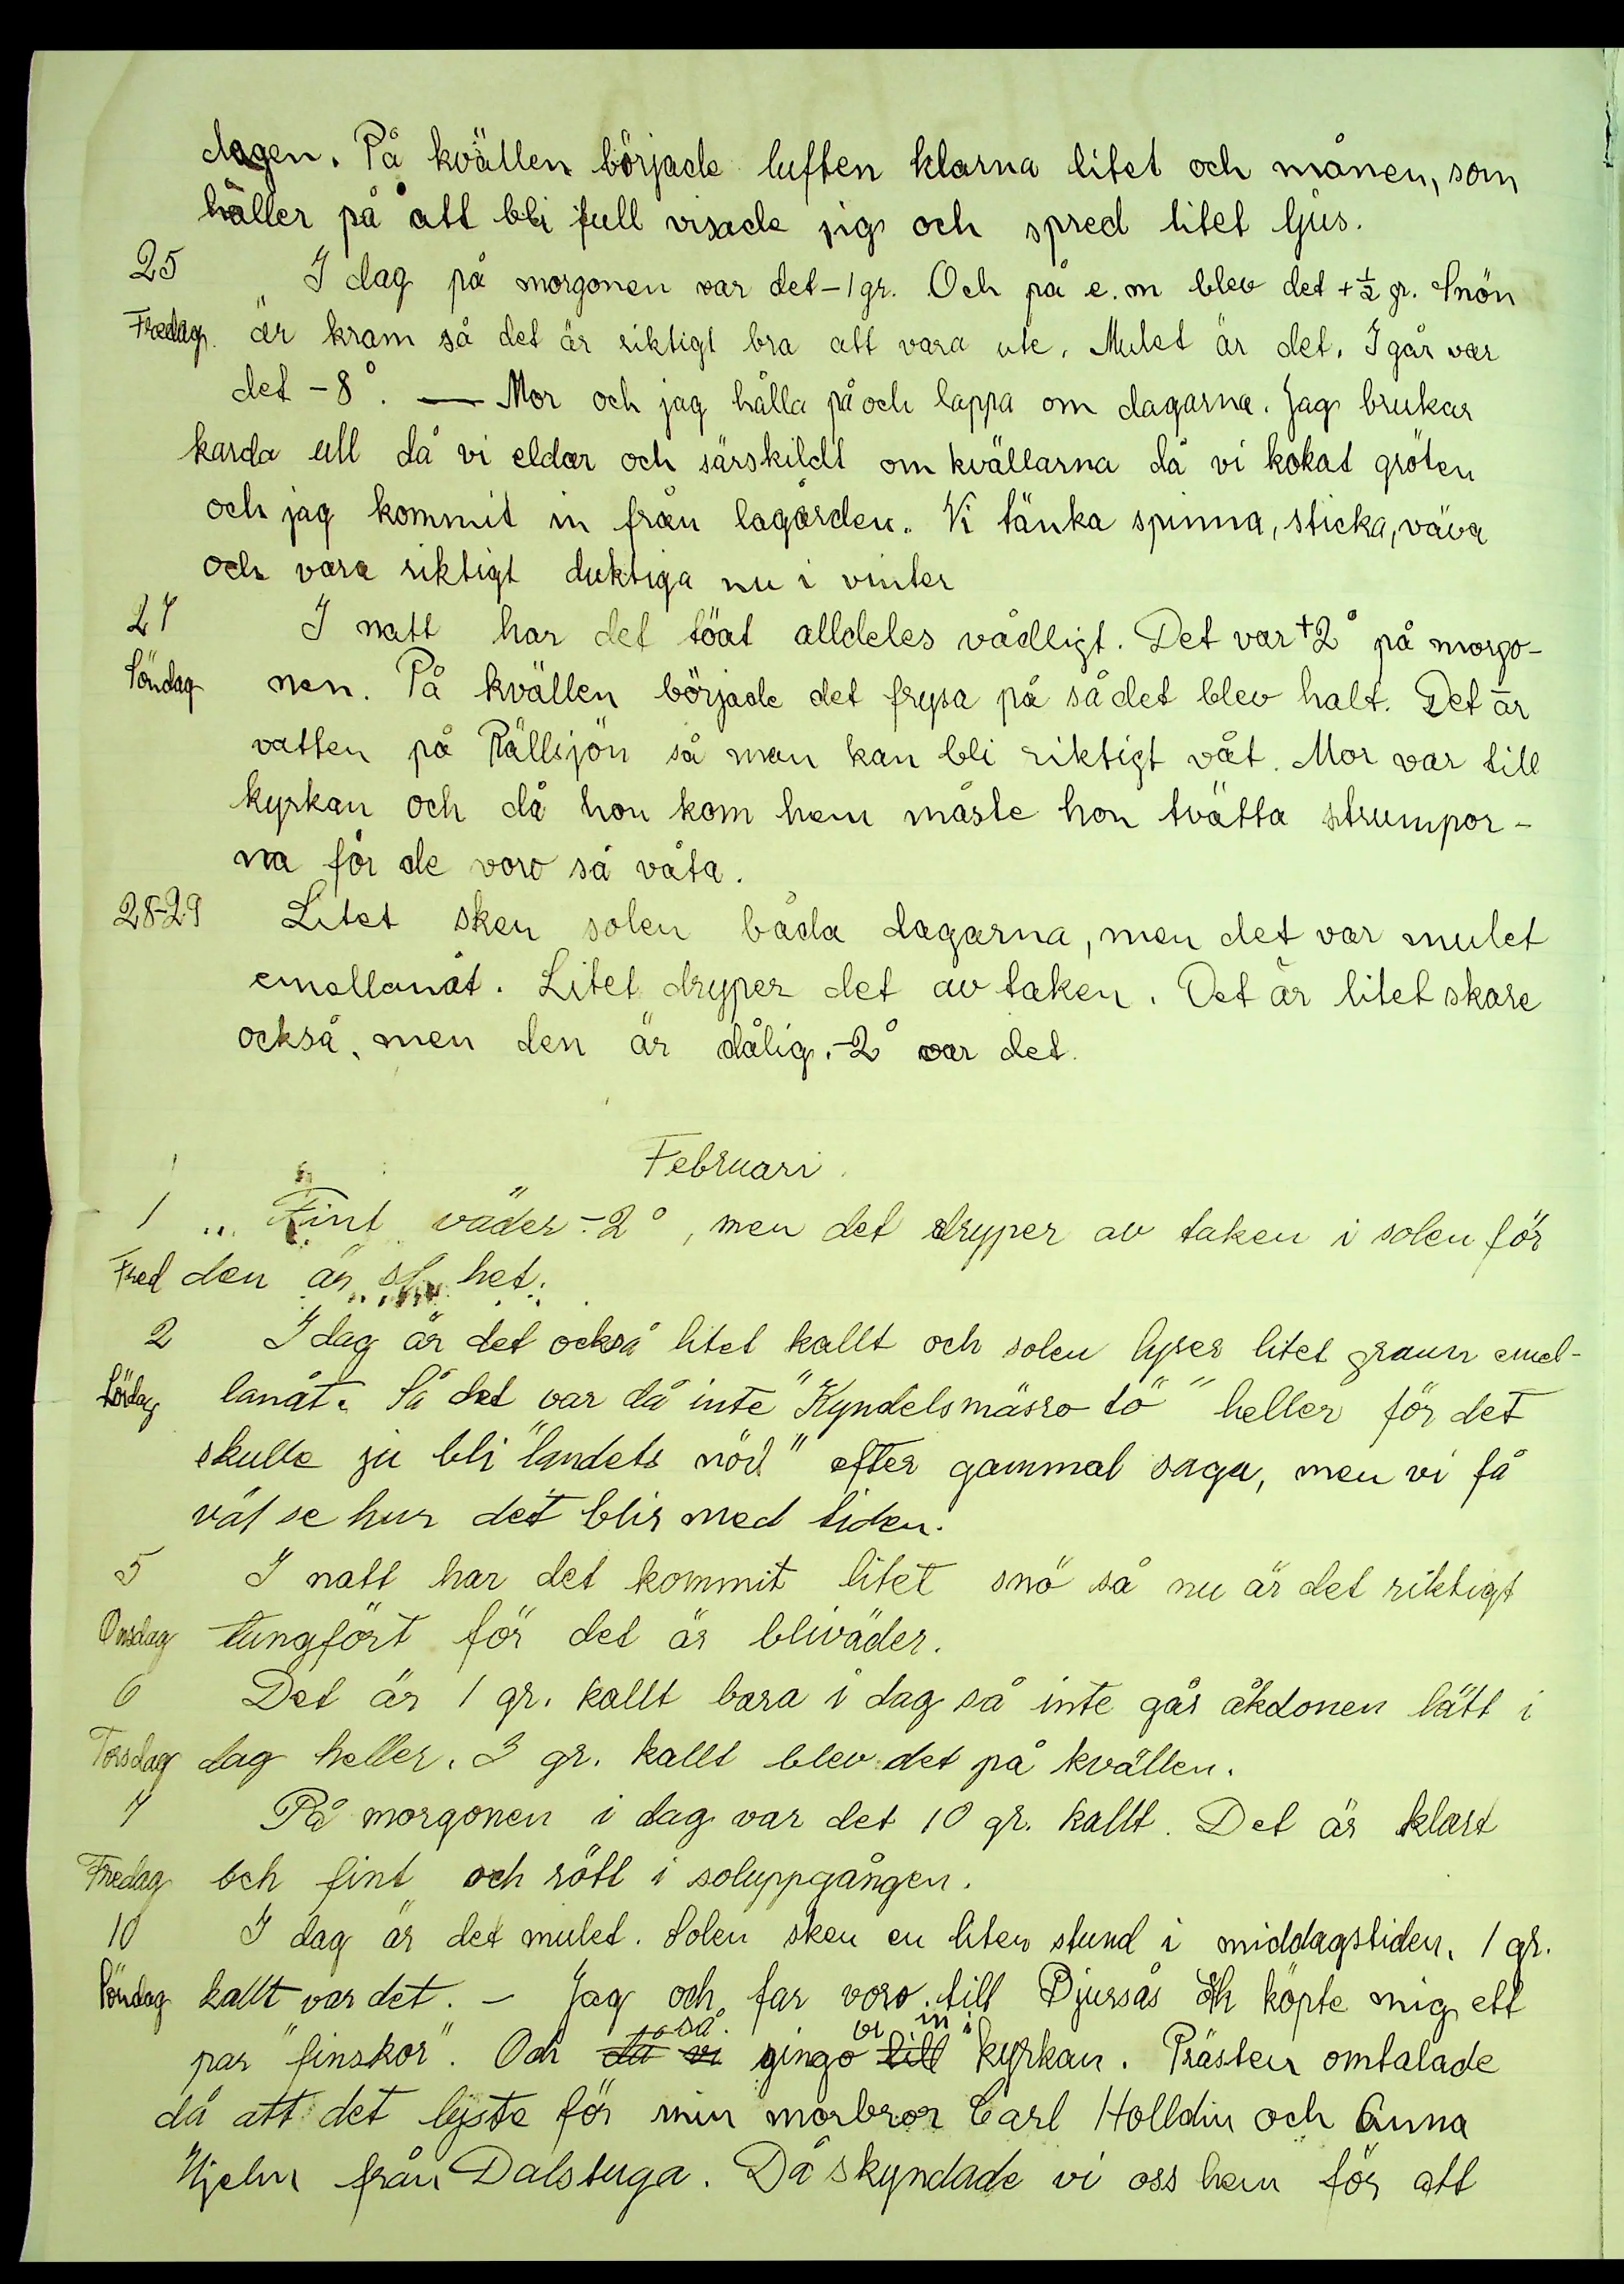 dagen. På kvällen började luften klarna litet och månen, som
håller på att bli full visade sig och spred litet ljus.
25 I dag på morgonen var det -1 gr. Och på e.m blev det +½ gr. Snön
Fredag. är kram så det är riktigt bra att vara ute. Mulet är det. I går var
det -8°. — Mor och jag hålla på och lappa om dagarna. Jag brukar
karda ull då vi eldar och särskildt om kvällarna då vi kokat gröten
och jag kommit in från lagården. Vi tänka spinna, sticka, väva
och vara riktigt duktiga nu i vinter
27 I natt har det töat alldeles vådligt. Det var +2° på morgo-
Söndag nen. På kvällen började det frysa på så det blev halt. Det är
vatten på Rällsjön så man kan bli riktigt våt. Mor var till
kyrkan och då hon kom hem måste hon tvätta strumpor-
na för de voro så våta.
28-29 Litet sken solen båda dagarna, men det var mulet
emellanåt. Litet dryper det av taken. Det är litet skare
också, men den är dålig. -2° var det.
Februari.
1 Fint väder -2°, men det dryper av taken i solen för
Fred den är het.
2 I dag är det också litet kallt och solen lyser litet grann emel-
Lördag lanåt. Så det var då inte "Kyndelsmässo tö" heller för det
skulle ju bli "landets nöd" efter gammal saga, men vi få
väl se hur det blir med tiden.
5 I natt har det kommit litet snö så nu är det riktigt
Onsdag tungfört för det är bliväder.
6 Det är 1 gr. kallt bara i dag så inte går åkdonen lätt i
Torsdag dag heller. 3 gr. kallt blev det på kvällen.
7 På morgonen i dag var det 10 gr. kallt. Det är klart
Fredag och fint och rött i soluppgången.
10 I dag är det mulet. Solen sken en liten stund i middagstiden. 1 gr.
Söndag kallt var det. - Jag och far voro till Bjursås och köpte mig ett
så. vi in i
par "finskor". Och då vi gingo till kyrkan. Prästen omtalade
då att det lyste för min morbror Carl Holldin och Anna
Hjelm från Dalstuga. Då skyndade vi oss hem för att